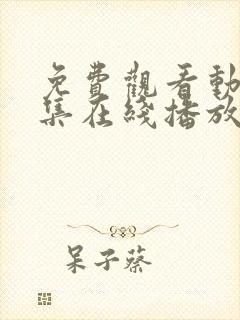 免費觀看動
集在綫播放
呆子蔡